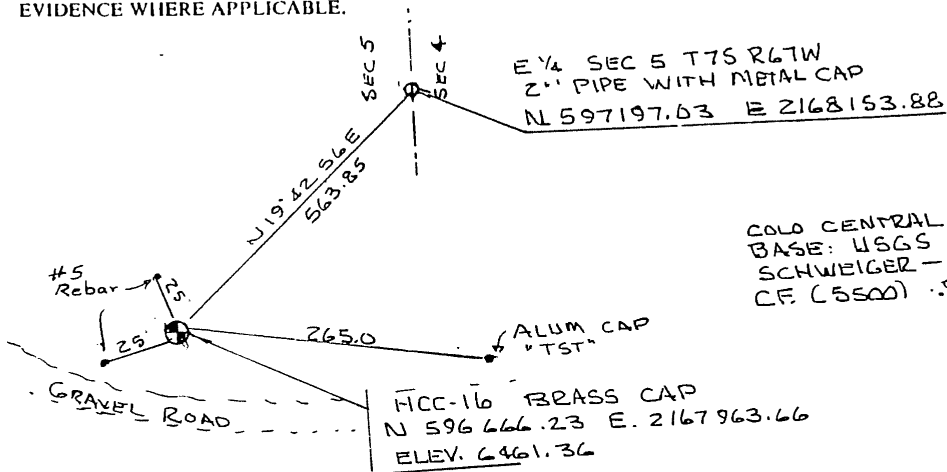 EVIDENCE WHERE APPLICABLE.
SEC 5
SEC 4
E 1/4 SEC 5 T7S R67W
2" PIPE WITH METAL CAP
N 597197.03 E 2168153.88
N 19° 42 56 E
563.85
COLO CENTRAL
BASE: USGS
SCHWEIGER -
C.F. (5500)
#5
Rebar
25'
25'
265.0
ALUM CAP
"TST"
GRAVEL ROAD
HCC-16 BRASS CAP
N 596666.23 E. 2167963.66
ELEV. 6461.36